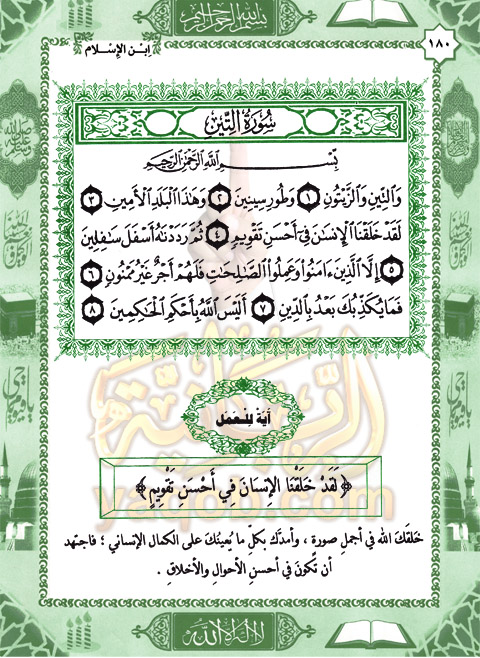 بسم الله الرحمن الرحيم
١٨٠
ابن الإسلام
سُورَةُ التِّينِ
بِسْمِ اللَّهِ الرَّحْمَٰنِ الرَّحِيمِ
وَالتِّينِ وَالزَّيْتُونِ ١ وَطُورِ سِينِينَ ٢ وَهَٰذَا الْبَلَدِ الْأَمِينِ ٣
لَقَدْ خَلَقْنَا الْإِنسَانَ فِي أَحْسَنِ تَقْوِيمٍ ٤ ثُمَّ رَدَدْنَٰهُ أَسْفَلَ سَٰفِلِينَ
٥ إِلَّا الَّذِينَ ءَامَنُوا وَعَمِلُوا الصَّٰلِحَٰتِ فَلَهُمْ أَجْرٌ غَيْرُ مَمْنُونٍ ٦
فَمَا يُكَذِّبُكَ بَعْدُ بِالدِّينِ ٧ أَلَيْسَ اللَّهُ بِأَحْكَمِ الْحَٰكِمِينَ ٨
آيَةٌ لِلْعَمَل
﴿ لَقَدْ خَلَقْنَا الإِنسَانَ فِي أَحْسَنِ تَقْوِيمٍ ﴾
خَلقكَ الله في أجملِ صورةٍ ، وأمدَّك بكلِّ ما يُعينُكَ على الكمال الإنساني ؛ فاجتهد
أن تكونَ في أحسنِ الأحوالِ والأخلاقِ .
yaqob.com
لا إله إلا الله